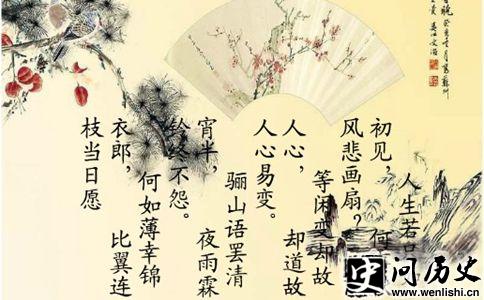 人生若
初见，何
风悲画扇？
等闲变却故
人心，却道故
人心易变。
骊山语罢清
宵半，夜雨霖
铃终不怨。
何如薄幸锦
衣郎，比翼连
枝当日愿
史 问历史
www.wenlishi.cn